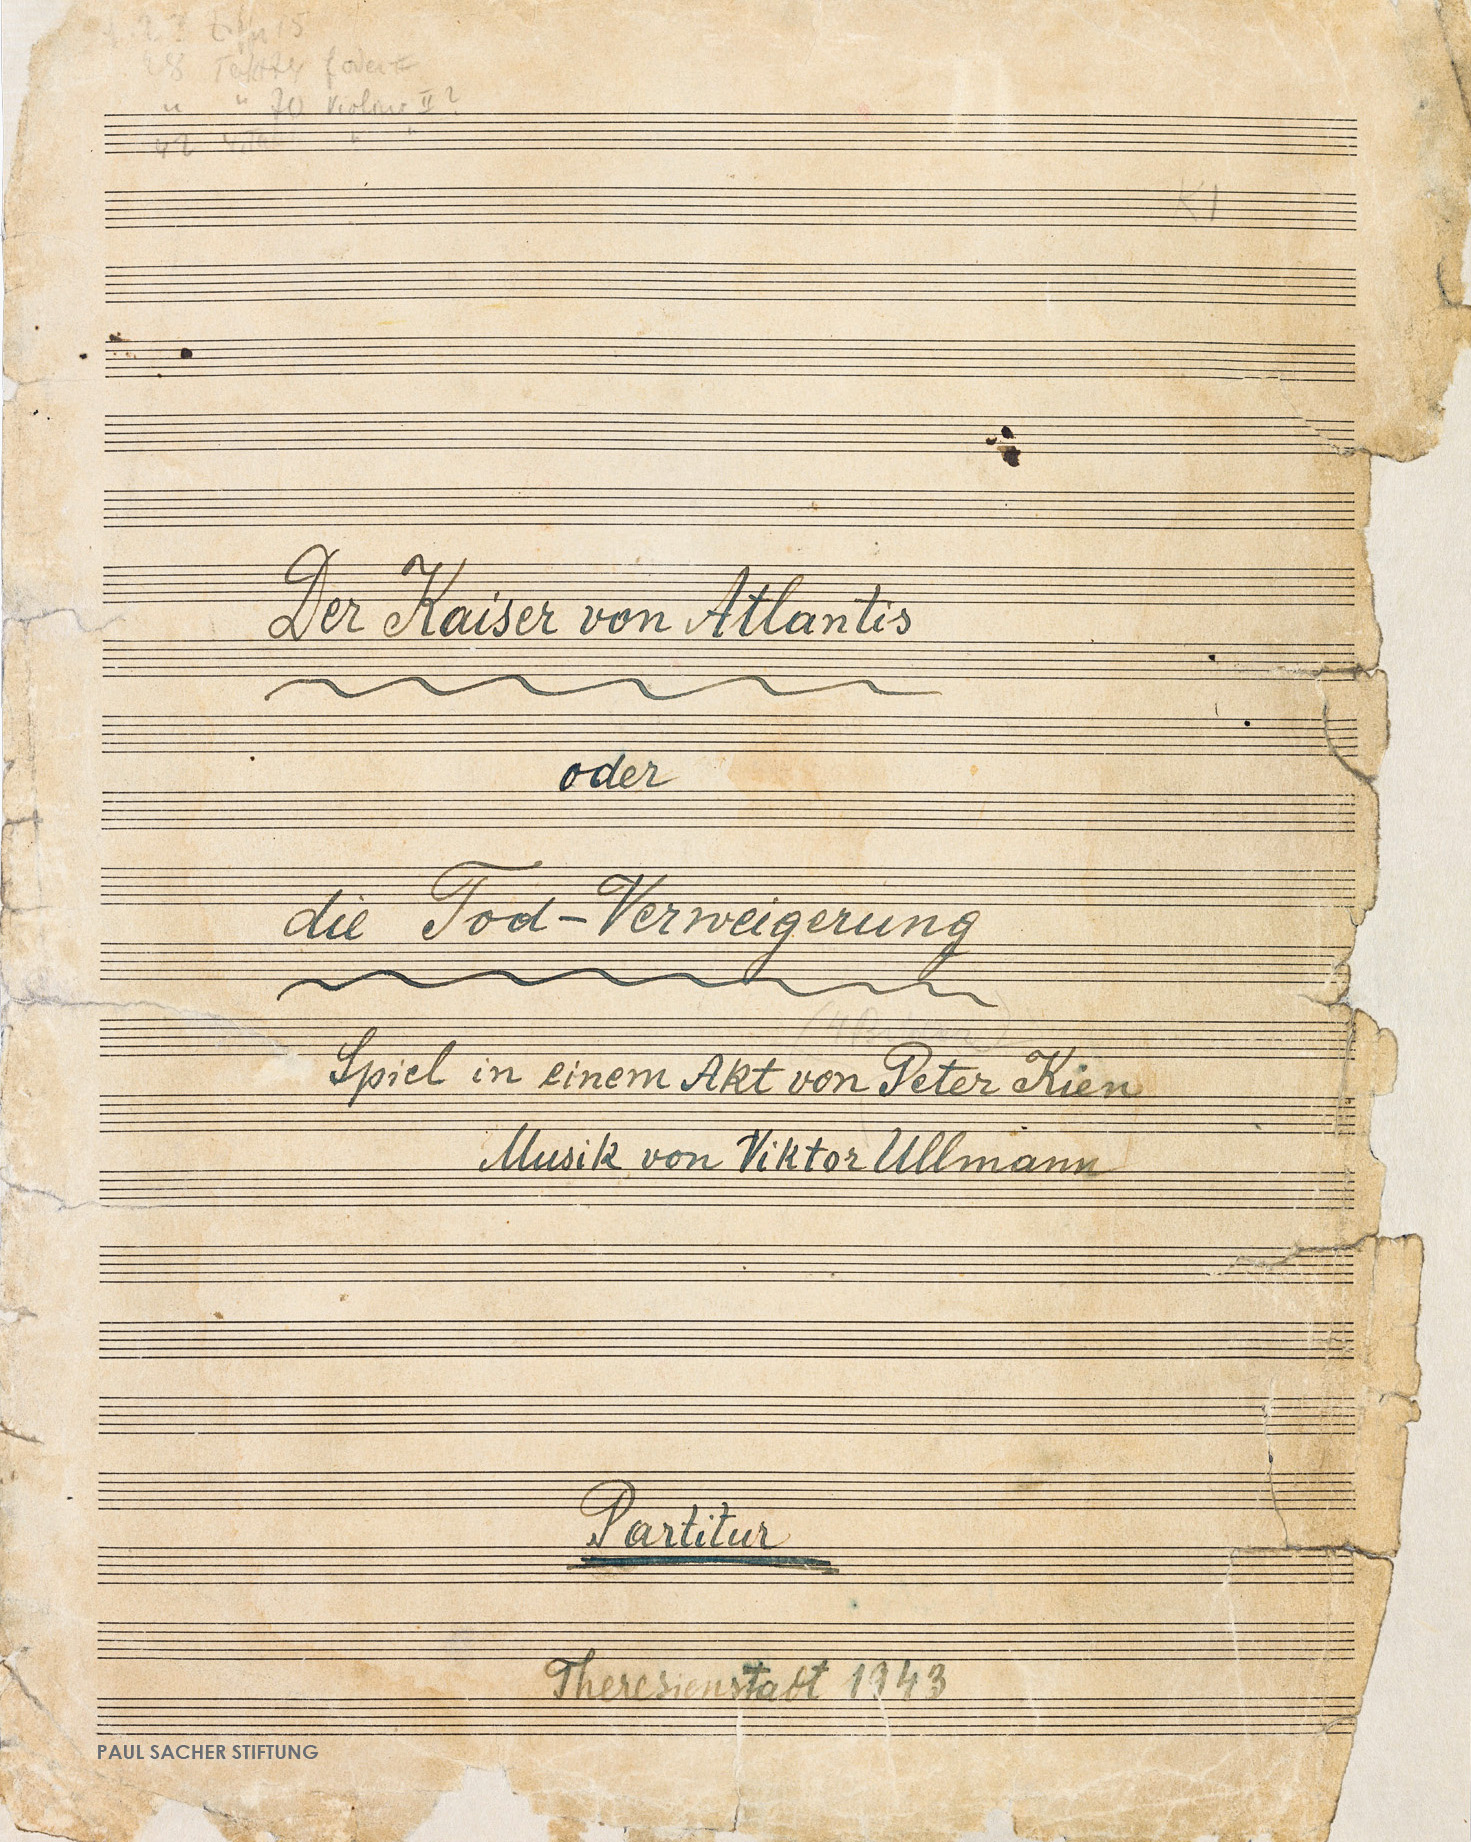 70 Violino II?
K1
Der Kaiser von Atlantis
oder
die Tod-Verweigerung
Spiel in einem Akt von Peter Kien
Musik von Viktor Ullmann
Partitur
Theresienstadt 1943
PAUL SACHER STIFTUNG